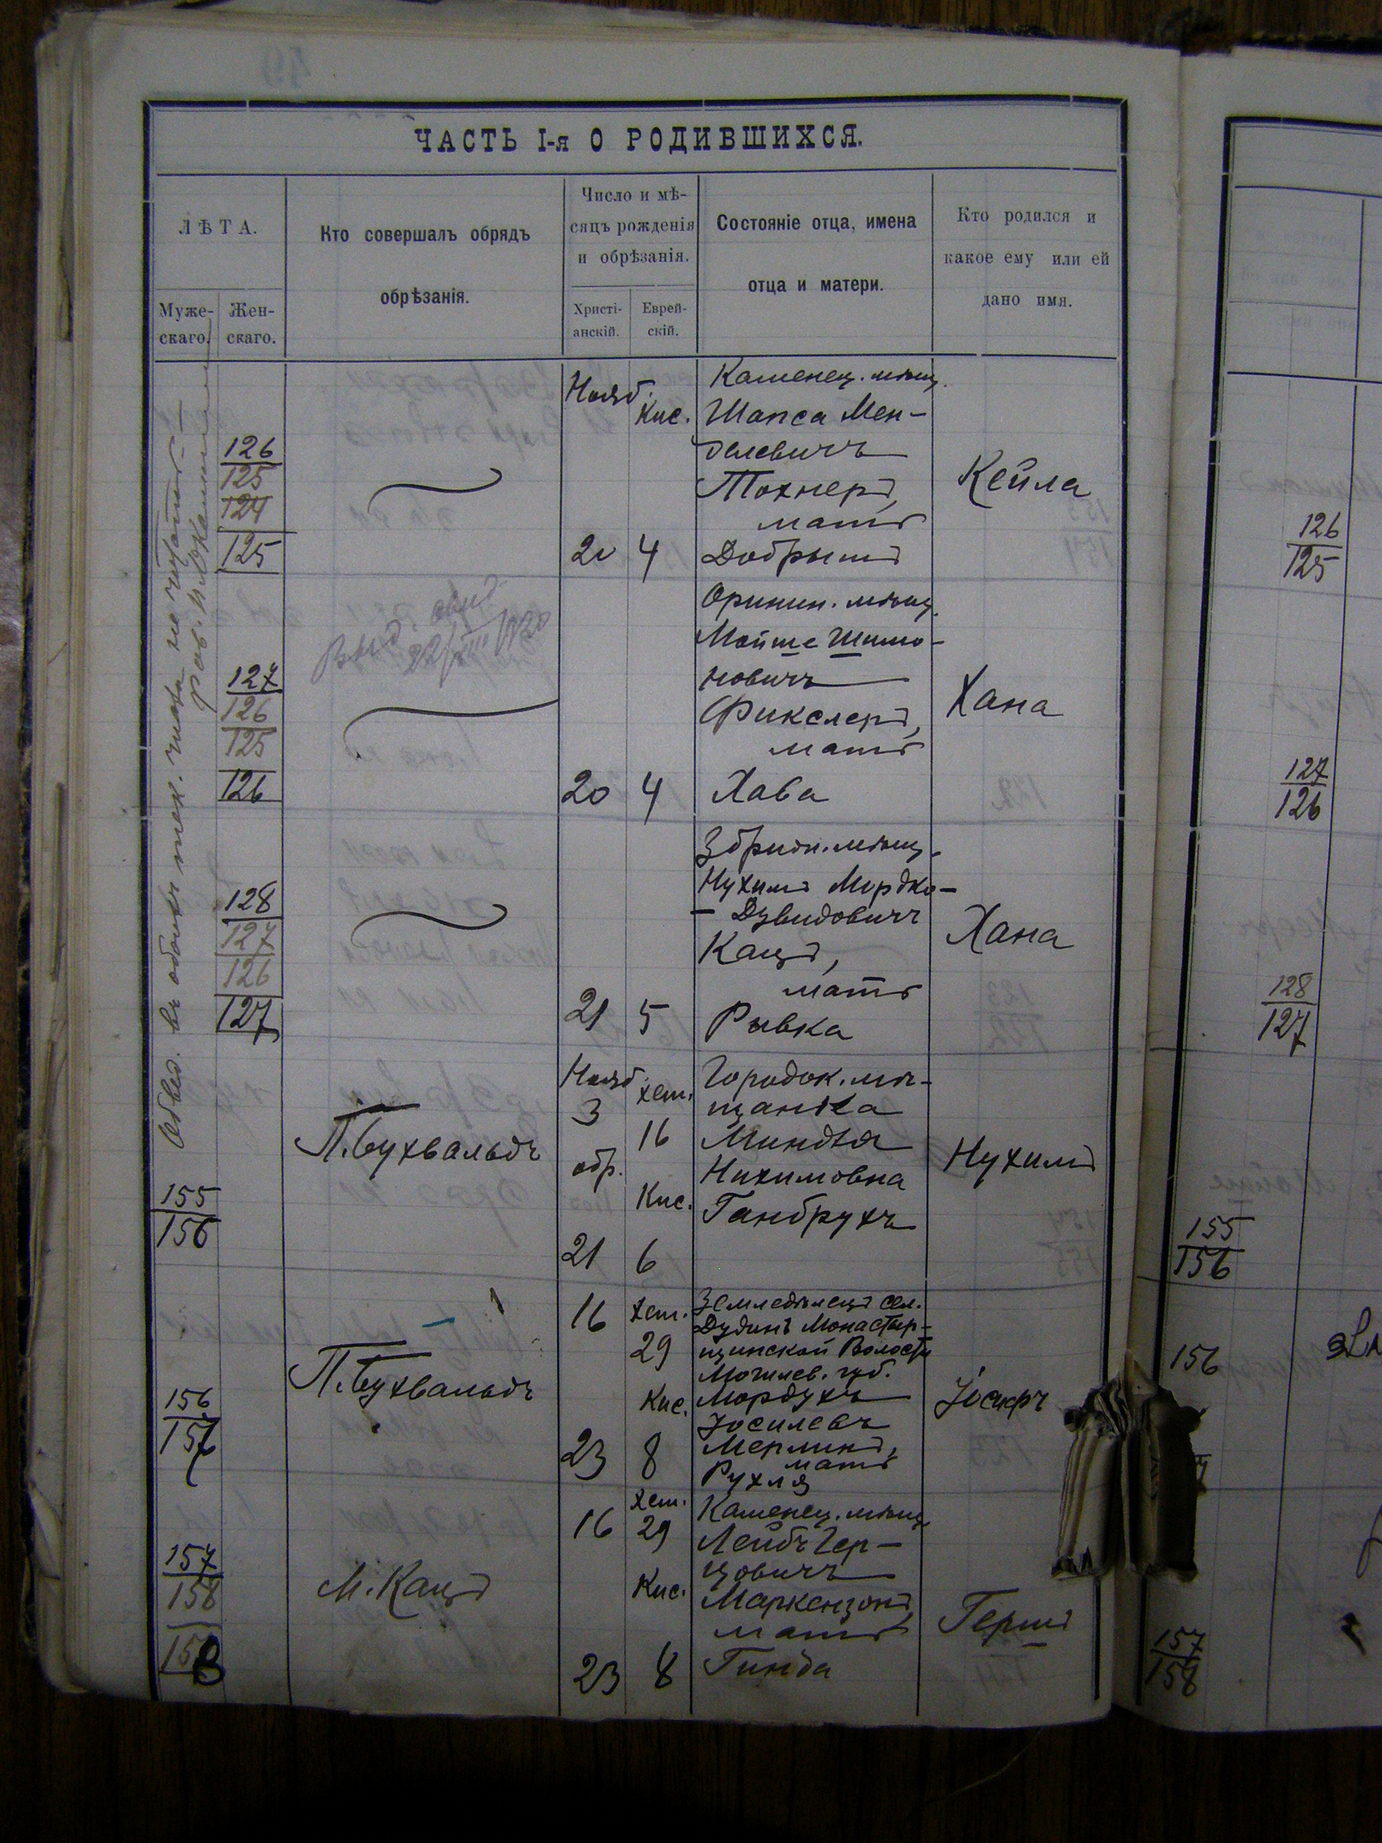 ЧАСТЬ I-я О РОДИВШИХСЯ.
ЛѢТА.
Муже-
скаго.
Жен-
скаго.
Кто совершалъ обрядъ
обрѣзанія.
Число и мѣ-
сяцъ рожденія
и обрѣзанія.
Христі-
анскій.
Еврей-
скій.
Состояніе отца, имена
отца и матери.
Кто родился и
какое ему или ей
дано имя.
126
125
124
125
Нояб.
20
Кис.
4
Каменец. мѣщ.
Шапса Мен-
делевичъ
Тохнеръ,
мать
Добрышъ
Кейла
126
125
127
126
125
126
22/VIII 1920
20
4
Оринин. мѣщ.
Мойше Шимо-
новичъ
Фикслеръ,
мать
Хава
Хана
127
126
128
127
126
127
21
5
Збриж. мѣщ.
Нухимъ Мордко-
- Дувидовичъ
Кацъ,
мать
Рывка
Хана
128
127
155
156
П. Бухвальдъ
Нояб.
3
обр.
21
хеш.
16
Кис.
6
Городок. мѣ-
щанка
Миндля
Нихимовна
Ганбрухъ
Нухимъ
155
156
156
157
П. Бухвальдъ
16
23
хеш.
29
Кис.
8
Земледѣлецъ сел.
Дудинъ Монастыр-
щинской Волости
Могилев. губ.
Мордухъ
Іосилевъ
Мерлинъ,
мать
Рухля
Іосифъ
156
157
158
158
М. Кацъ
16
23
хеш.
29
Кис.
8
Каменец. мѣщ.
Лейбъ Гер-
цовичъ
Маркензонъ,
мать
Гинда
Гершъ
157
158